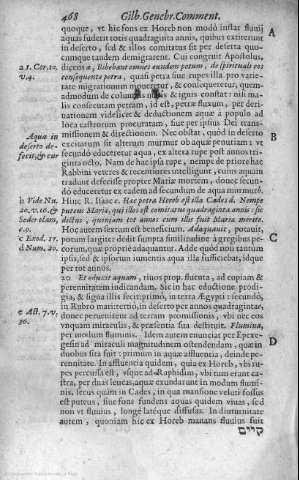 468 Gilb. Genebr. Comment.
quoque, vt hic fons ex Horeb non modò instar fluuij
aquas suderit totis quadraginta annis, quibus extiterunt
in deserto, sed & illos comitatus sit per deserta quo-
cunque tandem demigrarent. Cui congruit Apostolus,
dicens a, Bibebant omnes eandem potum, de spirituali eos
consequente petra, quasi petra siue rupes illa pro varie-
tate migrationum moueretur, & consequeretur, quem-
admodum de columna & ignis constat: nisi ma-
lis consecutam petram, id est, petrae fluxum, per deri-
uationem videlicet & deductionem aquae à populo ad
loca castrorum procuratam, siue per ipsius Dei trans-
missionem & directionem. Nec obstat, quòd in deserto
excitarum sit alterum murmur ob aquae penuriam, vt
secundo educeretur aqua, ex altera rupe post annos tri-
ginta octo. Nam de hac ipsa rupe, nempe de priore hac
Rabbini veteres & recentiores intelligunt, cuius aquam
tradunt defecisse propter Mariae mortem, donec secun-
dò educeretur ex eadem ad secundum de aqua murmur b.
Hinc R. Isaac c. Haec petra Horeb est illa Cades d. Nempe
puteus Mariae, qui illos est comitatus quadraginta annis: sic
dictus, quoniam tot annos eum illis fuit Maria merito.
Hoc autem sextum est beneficium. Adaquauit, potauit,
potum largitèr dedit sumpta similitudine à gregibus pe-
corum, quae propriè adaquantur. Adde quòd non tantùm
ipsis, sed & ipsorum iumentis aqua illa suffiiciebat, idque
per tot annos.
20 Et eduxit aquam, riuos prop. fluenta, ad copiam &
perennitatem indicandam. Sic in hac eductione prodi-
gia, & signa illis fecit primò, in terra Aegypti: secundò,
in Rubro mari: tertiò, in deserto per annos quadraginta e,
donec peruenirent ad terram promissionis, vbi nec eos
vnquam miraculis, & praesentia sua destituit. Flumina,
per modum fluminis. Idem autem enunciat per Epexe-
gesin ad miraculi magnitudinem ostendendam, quae in
duobus sita fuit: primùm in aquae affluentia, deinde pe-
rennitate. In affluentia quidem, quia ex Horeb, vbi ru-
pes percussa est, vsque ad Raphidim, vbi tum erant ca-
stra, per duas leucas, aquae exundarunt in modum flumi-
nis, secus quàm in Cades, in qua mansione veluti fossus
est puteus, siue fons fundens aquas quidem viuas, sed
non vt fluuius, longè latéque diffusas. In diuturnitate
autem, quoniam hic ex Horeb manans fluuius fuit
קיים
A
B
C
D
a 1. Cor. 10.
v. 4.
Aqua in
deserto de-
fecit, & cur
b Vide Nu.
20. v. 10. &
Seder olam,
c. 9.
c Exod. 17.
d Num. 20.
e Act. 7. v.
36.